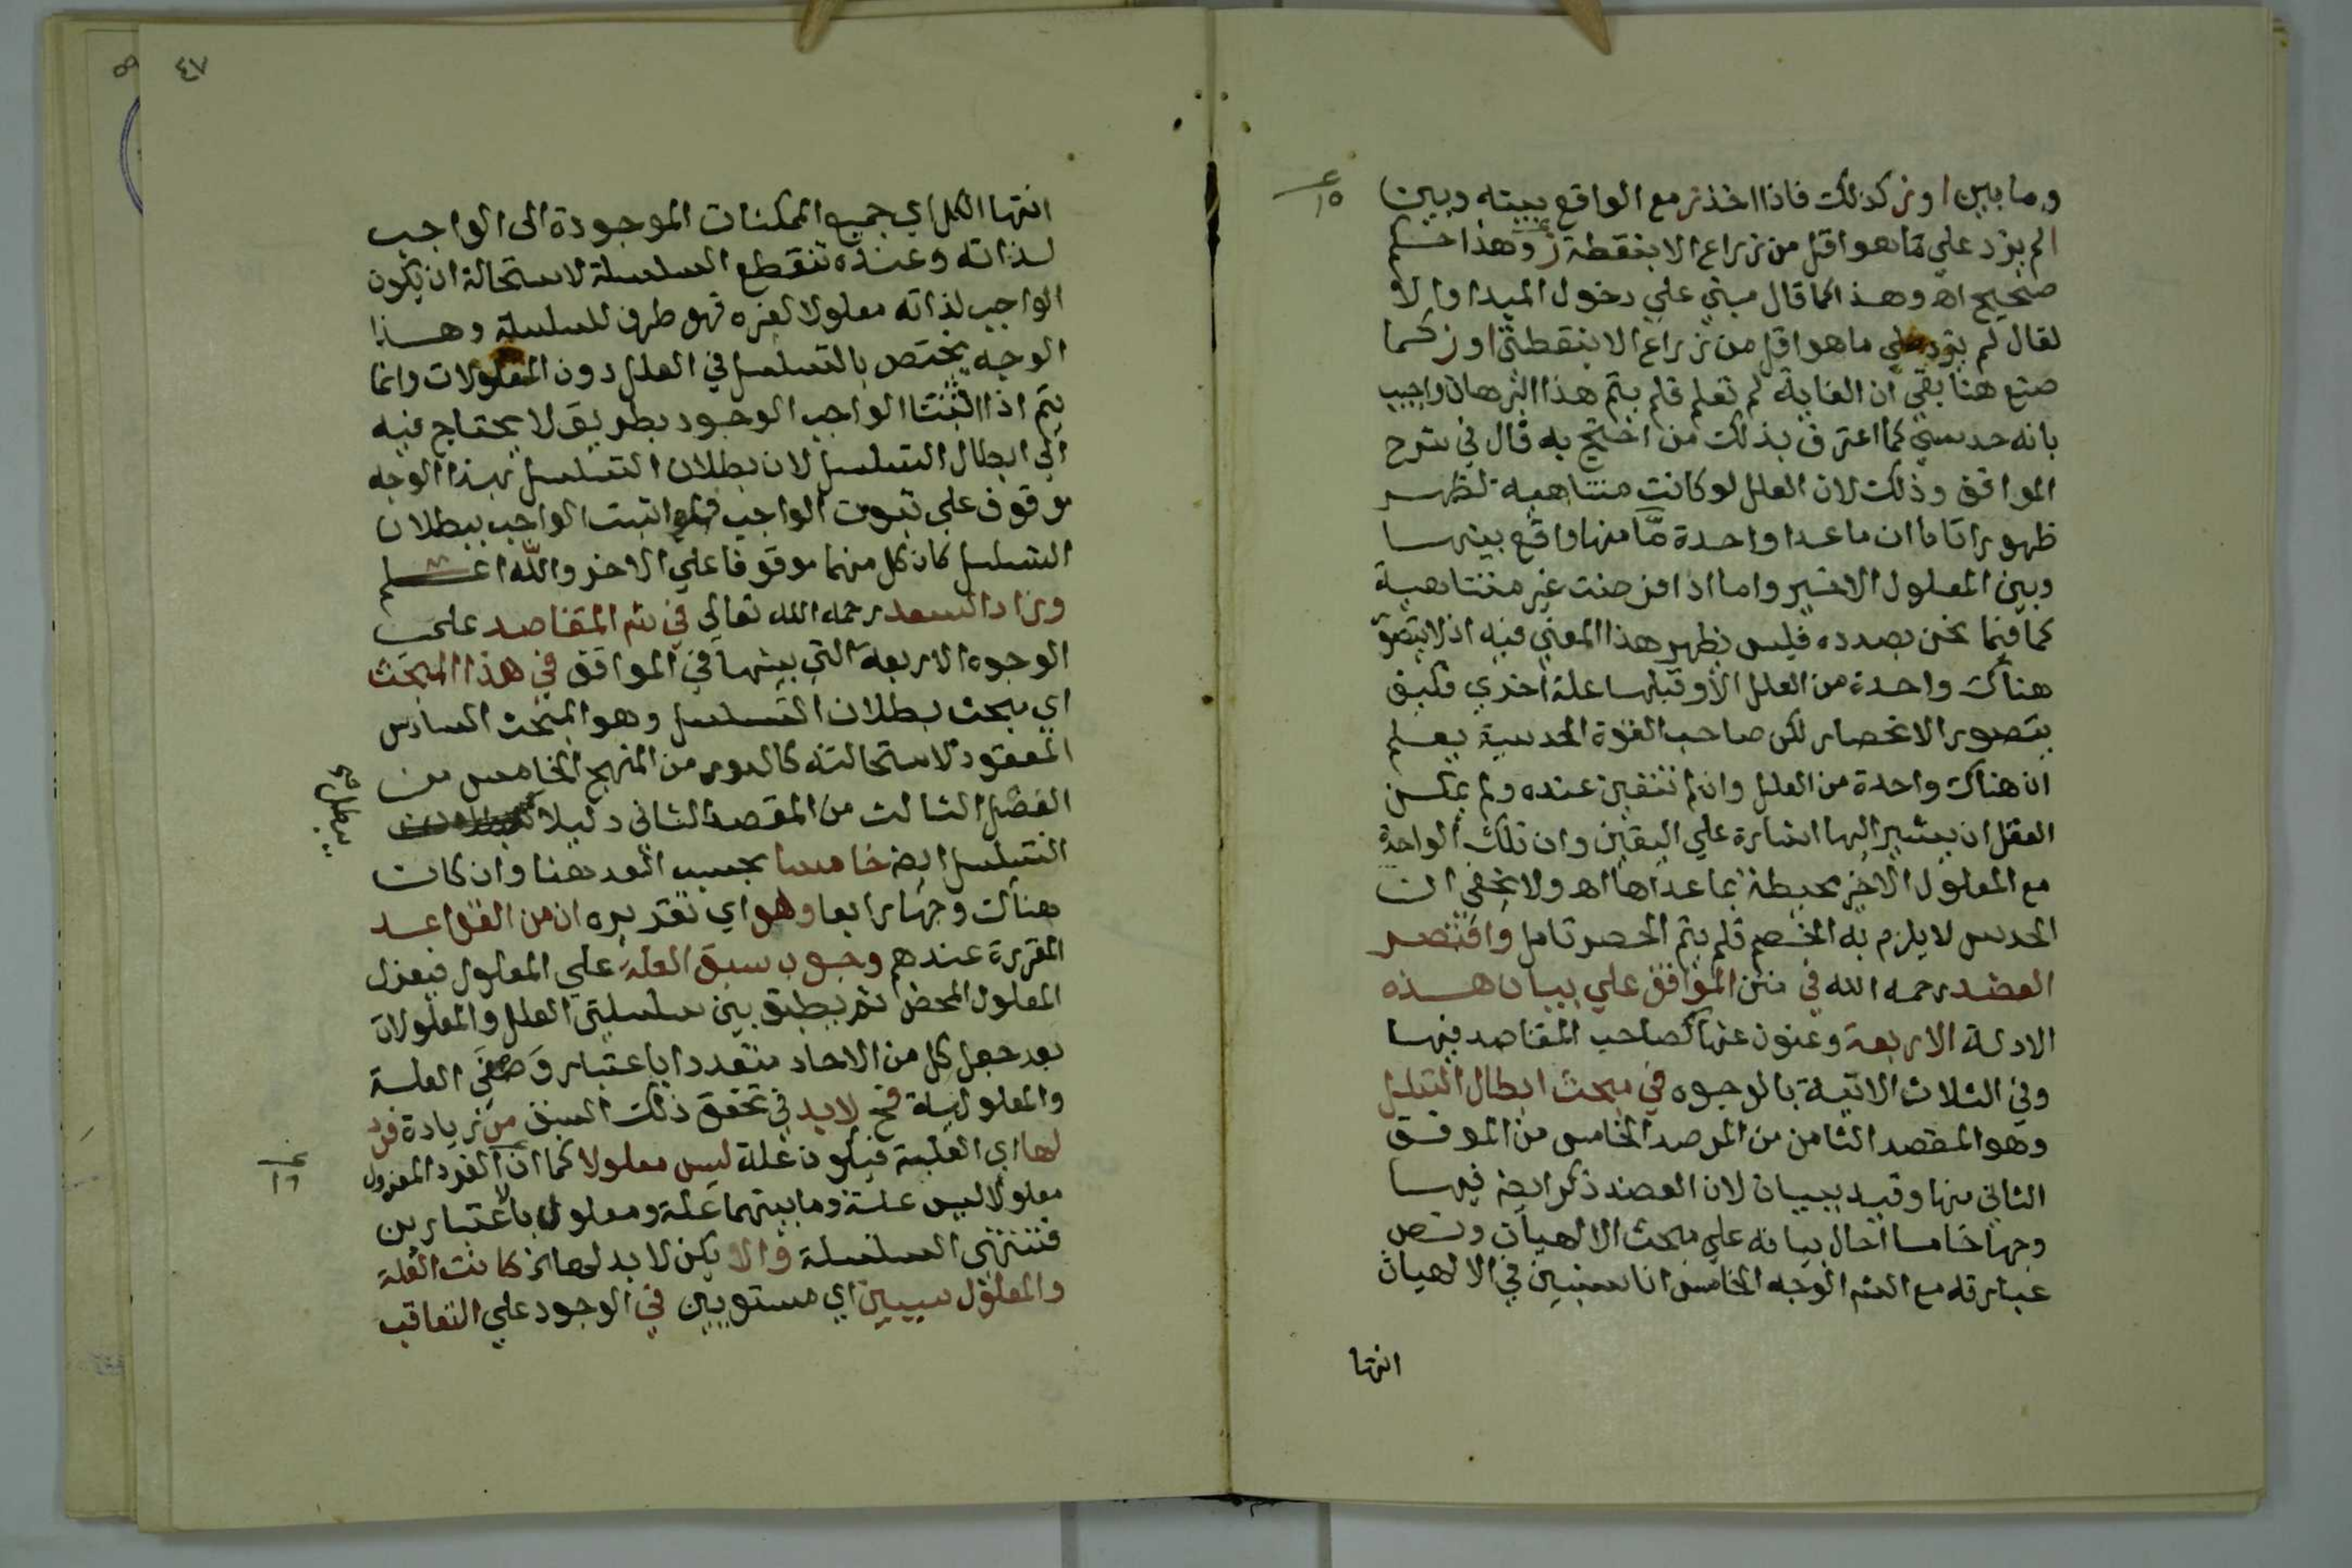 وما بين ا وز كذلك فاذا اخذ ز مع الواقع بينه وبين
ا لم يزد علي ما هو اقل من ذراع الا بنقطة ز وهذا حكم
صحيح اه وهذا كما قال مبني علي دخول المبدا والا
لقال لم يزد علي ما هو اقل من ذراع الا بنقطتي ا وز كما
صنع هنا بقي ان الغاية لم تعلم فلم يتم هذا البرهان واجيب
بانه حدسي كما اعترف بذلك من احتج به قال في شرح
المواقف وذلك لان العلل لو كانت متناهية لظهر
ظهورا تاما ان ما عدا واحدة مّا منها واقع بينها
وبين المعلول الاخير واما اذا فرضت غير متناهية
كما فيما نحن بصدده فليس يظهر هذا المعني فيه اذ لا يتصور
هناك واحدة من العلل الا وقبلها علة اخري فكيف
يتصور الانحصار لكن صاحب القوة الحدسية يعلم
ان هناك واحدة من العلل وان لم تتعين عنده ولم يمكن
العقل ان يشير اليها اشارة علي اليقين وان تلك الواحدة
مع المعلول الاخير محيطة بما عداها اه ولا يخفي ان
الحدس لا يلزم به الخصم فلم يتم الحصر تامل واقتصر
العضد رحمه الله في متن المواقف علي بيان هذه
الادلة الاربعة وعنون عنها كصاحب المقاصد فيها
وفي الثلاث الاتية بالوجوه في مبحث ابطال التسلسل
وهو المقصد الثامن من المرصد الخامس من الموقف
الثاني منها وقيد ببيان لان العضد ذكر ايضه فيها
وجها خامسا احال بيانه علي مبحث الالهيات ونص
عبارته مع الشم الوجه الخامس انا سنبين في الالهيات
انتها
ع ١٥
٤٧
انتها الكل اي جميع الممكنات الموجودة الى الواجب
لذاته وعنده تنقطع السلسلة لاستحالة ان يكون
الواجب لذاته معلولا لغيره فهو طرف للسلسلة وهذا
الوجه يختص بالتسلسل في العلل دون المعلولات وانما
يتم اذا اثبتنا الواجب الوجود بطريق لا يحتاج فيه
الي ابطال التسلسل لان بطلان التسلسل بهذا الوجه
موقوف علي ثبوت الواجب فلو اثبت الواجب ببطلان
التسلسل كان كل منهما موقوفا علي الاخر والله اعلم
وزاد السعد رحمه الله تعالي في شم المقاصد علي
الوجوه الاربعة التي بينها في المواقف في هذا المبحث
اي مبحث بطلان التسلسل وهو المبحث السادس
المعقود لاستحالته كالدور من المنهج الخامس من
الفصل الثالث من المقصد الثاني دليلا
التسلسل ايضه خامسا بحسب العد هنا وان كان
هناك وجها رابعا وهو اي تقديره ان من القواعد
المقررة عندهم وجوب سبق العلة علي المعلول فيعزل
المعلول المحض ثم يطبق بين سلسلتي العلل والمعلولات
بعد جعل كل من الاحاد متعددا باعتبار وَصفي العلة
والمعلولية فح لا بد في تحقق ذلك السبق من زيادة فرد
لها اي العلية فيكون علة ليس معلولا كما ان الفرد المعزول
معلولا ليس علة وما بينهما علة ومعلول بالاعتبارين
فتنتهي السلسلة والا يكن لا بد لها ز كانت العلة
والمعلول سيين اي مستويين في الوجود علي التعاقب
يبطل
ع ١٦